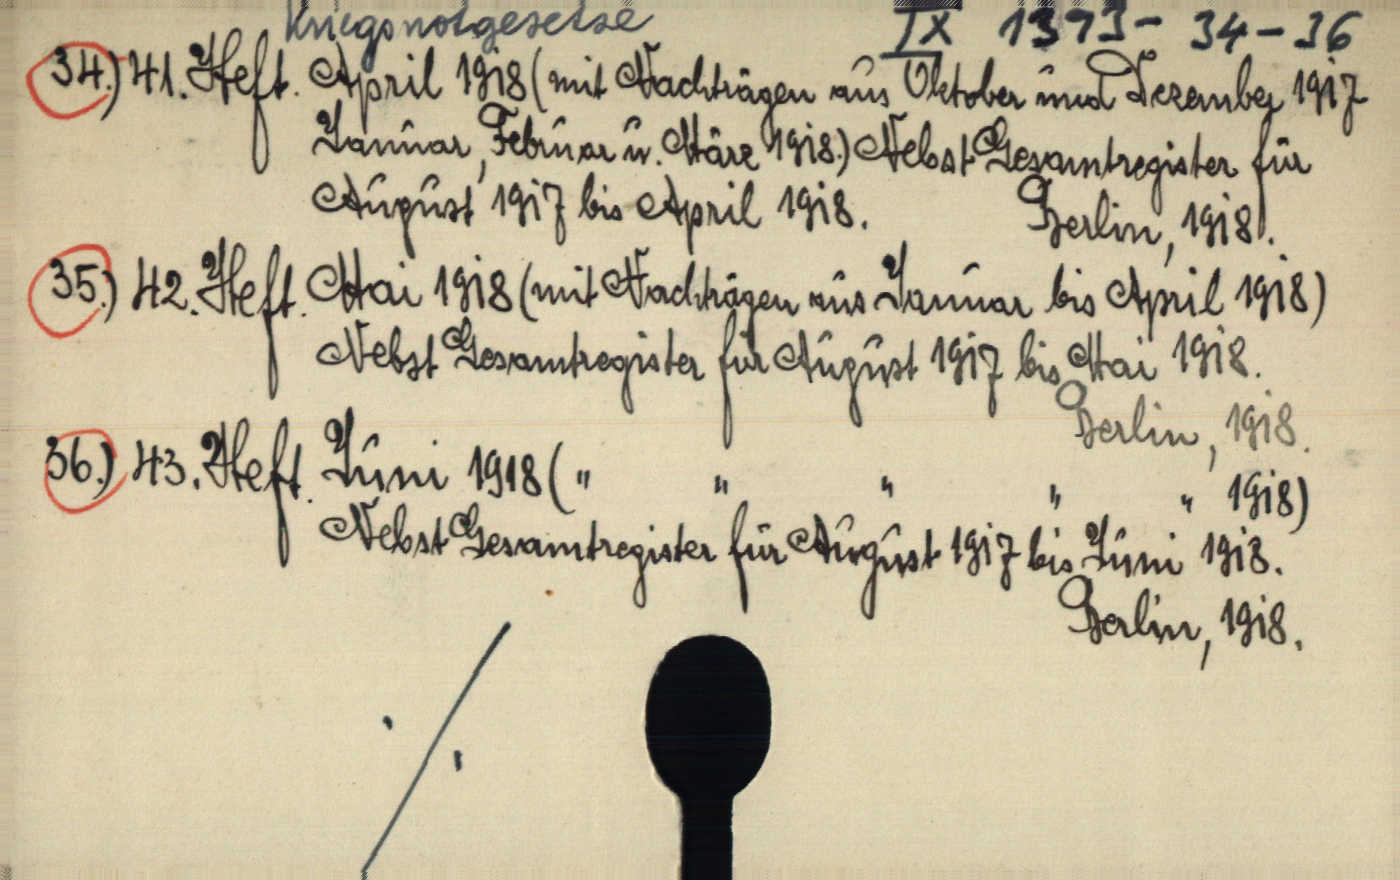 Kriegsnotgesetze IX 1393- 34-36
34.) 41. Heft. April 1918 (mit Nachträgen aus Oktober und Dezember 1917
Januar, Februar u. März 1918.) Nebst Gesamtregister für
August 1917 bis April 1918. Berlin, 1918.
35.) 42. Heft. Mai 1918 (mit Nachträgen aus Januar bis April 1918)
Nebst Gesamtregister für August 1917 bis Mai 1918.
Berlin, 1918.
36.) 43. Heft. Juni 1918 (" " " " " 1918)
Nebst Gesamtregister für August 1917 bis Juni 1918.
Berlin, 1918.